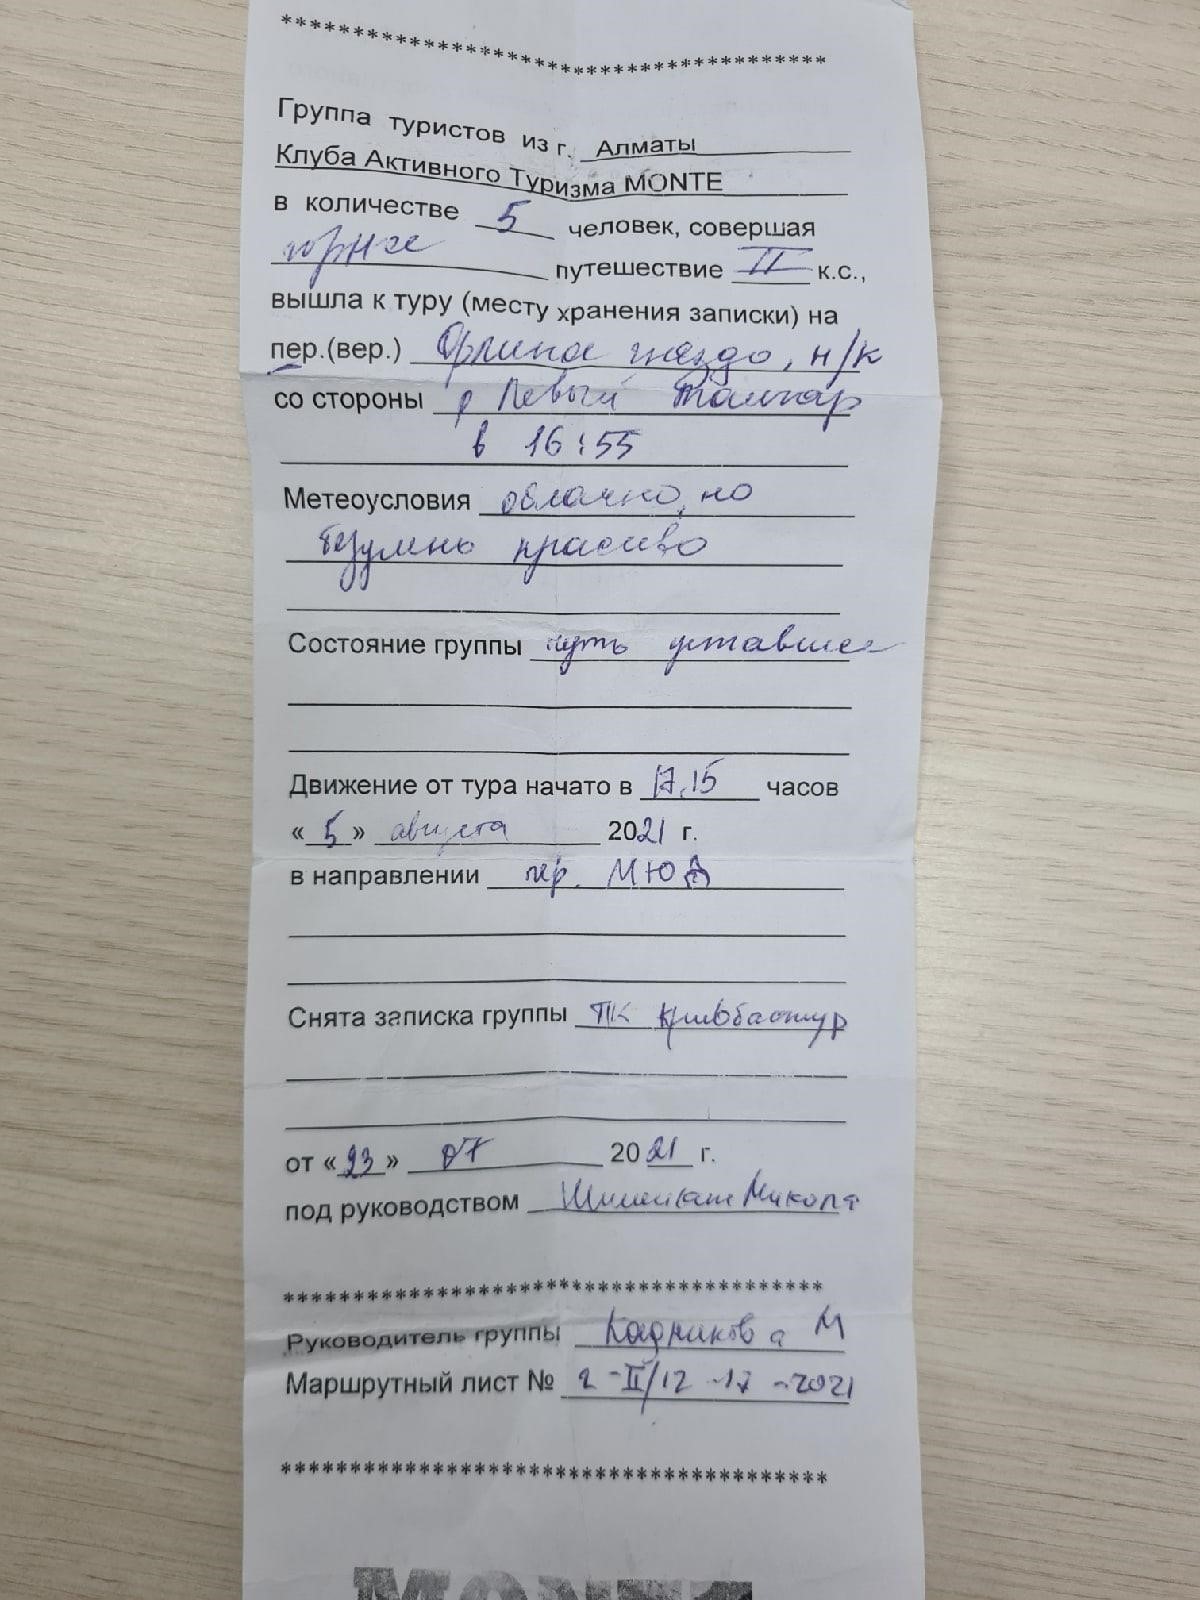 ****************************************
Группа туристов из г. Алматы
Клуба Активного Туризма MONTE
в количестве 5 человек, совершая
горное путешествие II к.с.,
вышла к туру (месту хранения записки) на
пер.(вер.) Орлиное гнездо, н/к
со стороны р Левый Талгар
в 16:55
Метеоусловия облачно, но
безумно красиво
Состояние группы чуть уставшее
Движение от тура начато в 17.15 часов
«5» августа 2021 г.
в направлении пер. МЮД
Снята записка группы ТК Кривбастур
от «23» 07 2021 г.
под руководством Микола
****************************************
Руководитель группы Кадникова М
Маршрутный лист № 2-II/12-17-2021
****************************************
MONTE